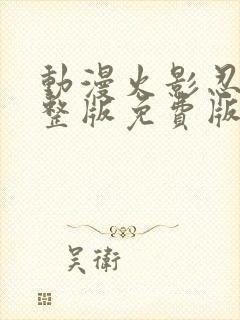 動漫火影忍
整版免費版
吴衛